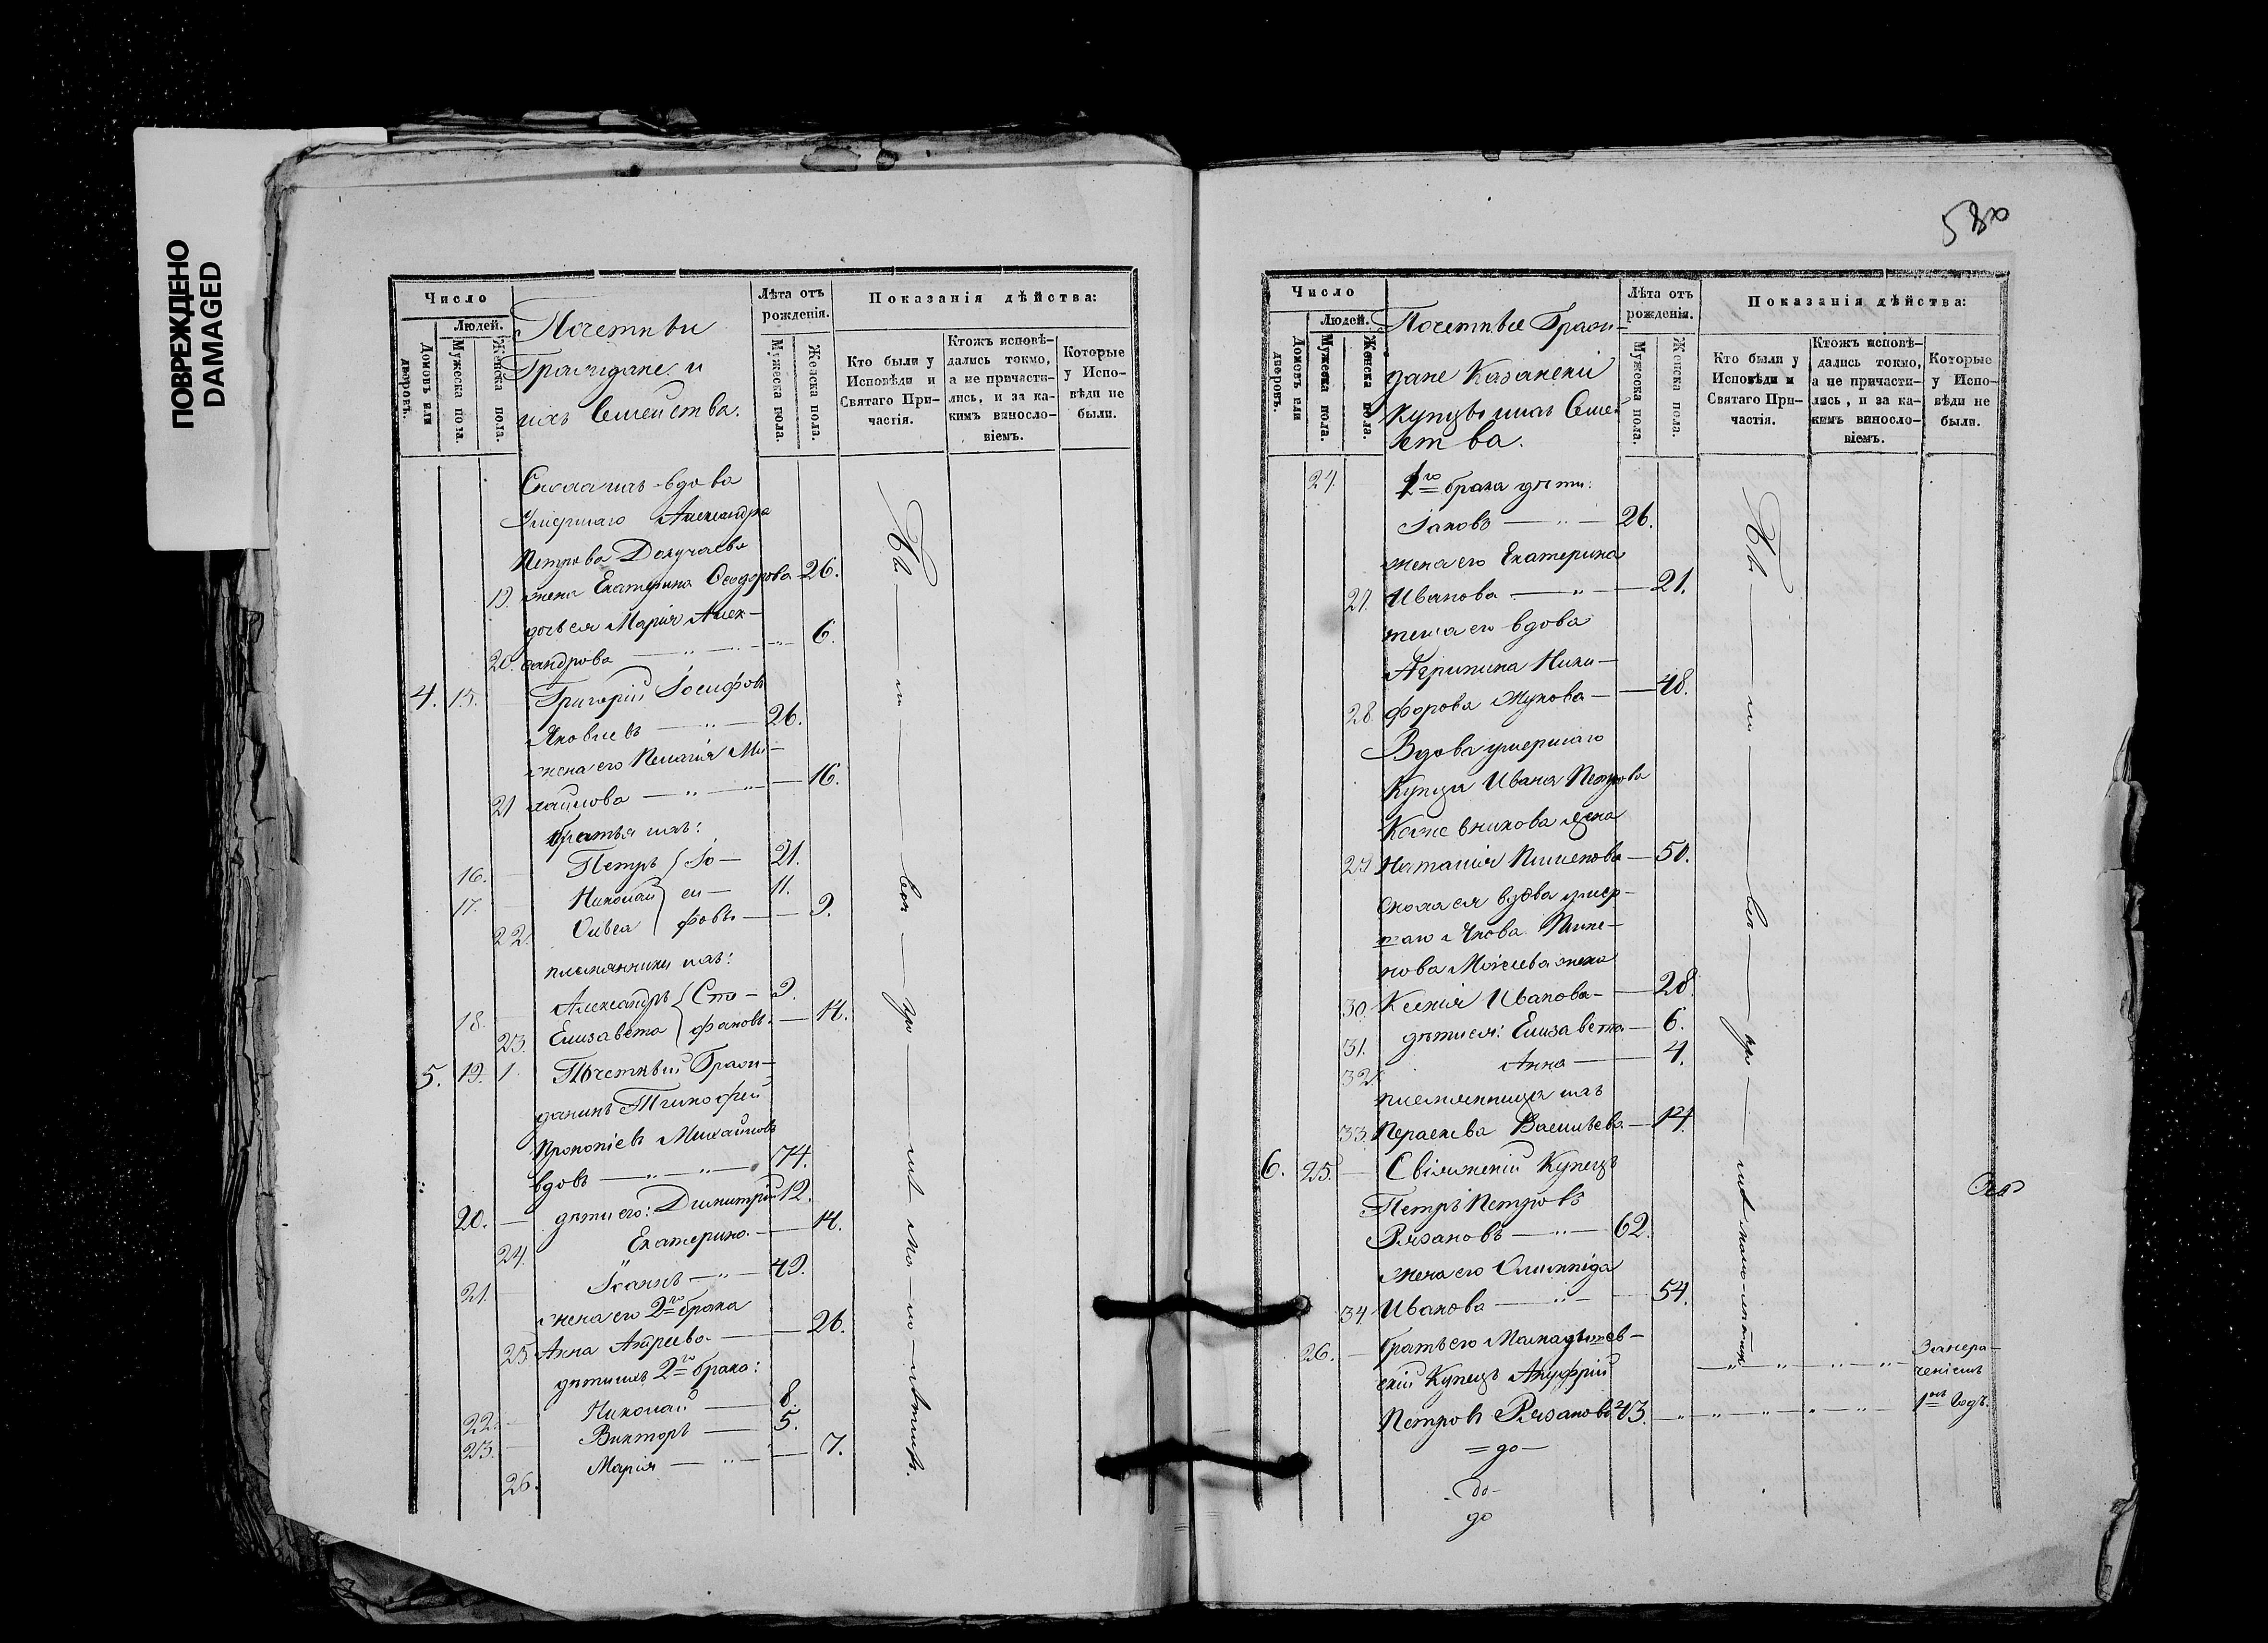 ПОВРЕЖДЕНО
DAMAGED
Число
Людей.
Домовъ или дворовъ.
Мужеска пола.
Женска пола.
Почетнıи
Граждане и
ихъ Семейства.
Лѣта отъ рожденія.
Мужеска пола.
Женска пола.
Показанія дѣйства:
Кто были у Исповѣди и Святаго Причастія.
Ктожъ исповѣдались токмо, а не причастились, и за какимъ винословіемъ.
Которые у Исповѣди не были.
вдова
умершаго Александра
Петрова
19. жена Екатерина Ѳеодорова 26.
дочь ея Марія Алек-
20. сандрова — 6.
4. 15. Григорій Іосифовъ
Яковлевъ — 26.
жена его Пелагія Ми-
21 хаилова — 16.
братья ихъ:
16. Петръ Іо- 21.
17. Николай си- 11.
22. фовы — 9.
племянники ихъ:
18. Александръ Сте- 9.
23. Елизавета фановы — 14.
5. 19. 1 Почетный Граж-
данинъ Тимофей
Прокопіевъ Михаиловъ
вдовъ — 74.
20. дѣти его: Димитрій 12.
24. Екатерина — 14.
21. Іоаннъ — 49.
жена его 2го брака
25. Анна Андреева — 26.
дѣти ихъ 2го брака:
22. Николай — 8.
23. Викторъ — 5.
26. Марія — 7.
580
Число
Людей.
Домовъ или дворовъ.
Мужеска пола.
Женска пола.
Почетные Граж-
дане Казанскіи
купцы и ихъ Семей-
ства.
Лѣта отъ рожденія.
Мужеска пола.
Женска пола.
Показанія дѣйства:
Кто были у Исповѣди и Святаго Причастія.
Ктожъ исповѣдались токмо, а не причастились, и за какимъ винословіемъ.
Которые у Исповѣди не были.
24. 1го брака дѣти:
Іаковъ — 26.
жена его Екатерина
27. Иванова — 21.
теща его вдова
Агрипина Ники-
28. форова Жукова — 48.
Вдова умершаго
Купца Ивана Петрова
Кожевникова жена
29 Наталія Пименова — 50.
сноха ея вдова умер-
шаго Якова Пиме-
нова жена
30. Ксенія Иванова — 28.
31. дѣти ея: Елизавета — 6.
32. Анна — 4.
племянница ихъ
33. Параскева Васильева — 14.
6. 25. Свіяжскій Купецъ
Петръ Петровъ
Рязановъ — 62.
жена его Олимпіда
34 Иванова — 54.
26. братъ его Малмыжев-
скій Купецъ Ануфрій
Петровъ Рязановъ 43.
до
до
до
1й годъ.